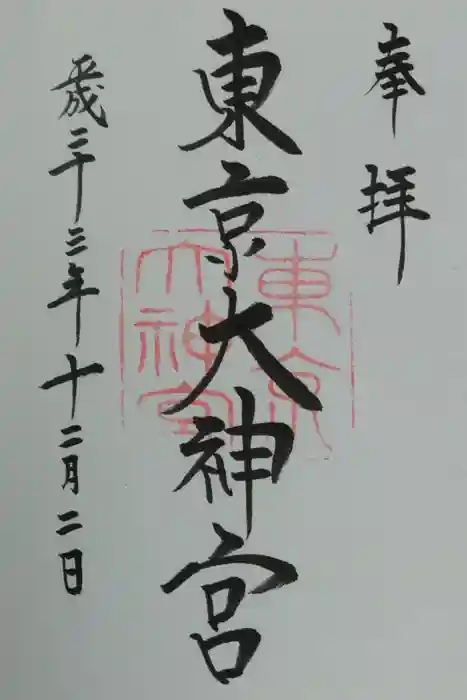 奉拝
東京大神宮
平成二十三年十二月二日
東京
大神宮